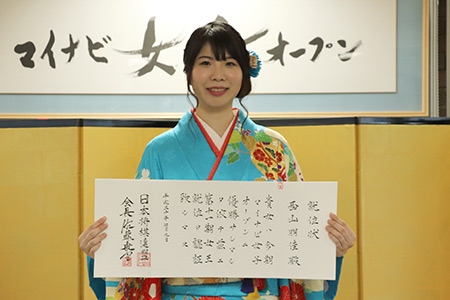 マイナビ 女子オープン
就位状
西山朋佳殿
貴女ハ今期
マイナビ女子
オープンニ
優勝サレマシ
タ依テ茲ニ
第十一期女王
就位ヲ認証
致シマス
平成三十年
日本将棋連盟
会長佐藤康光